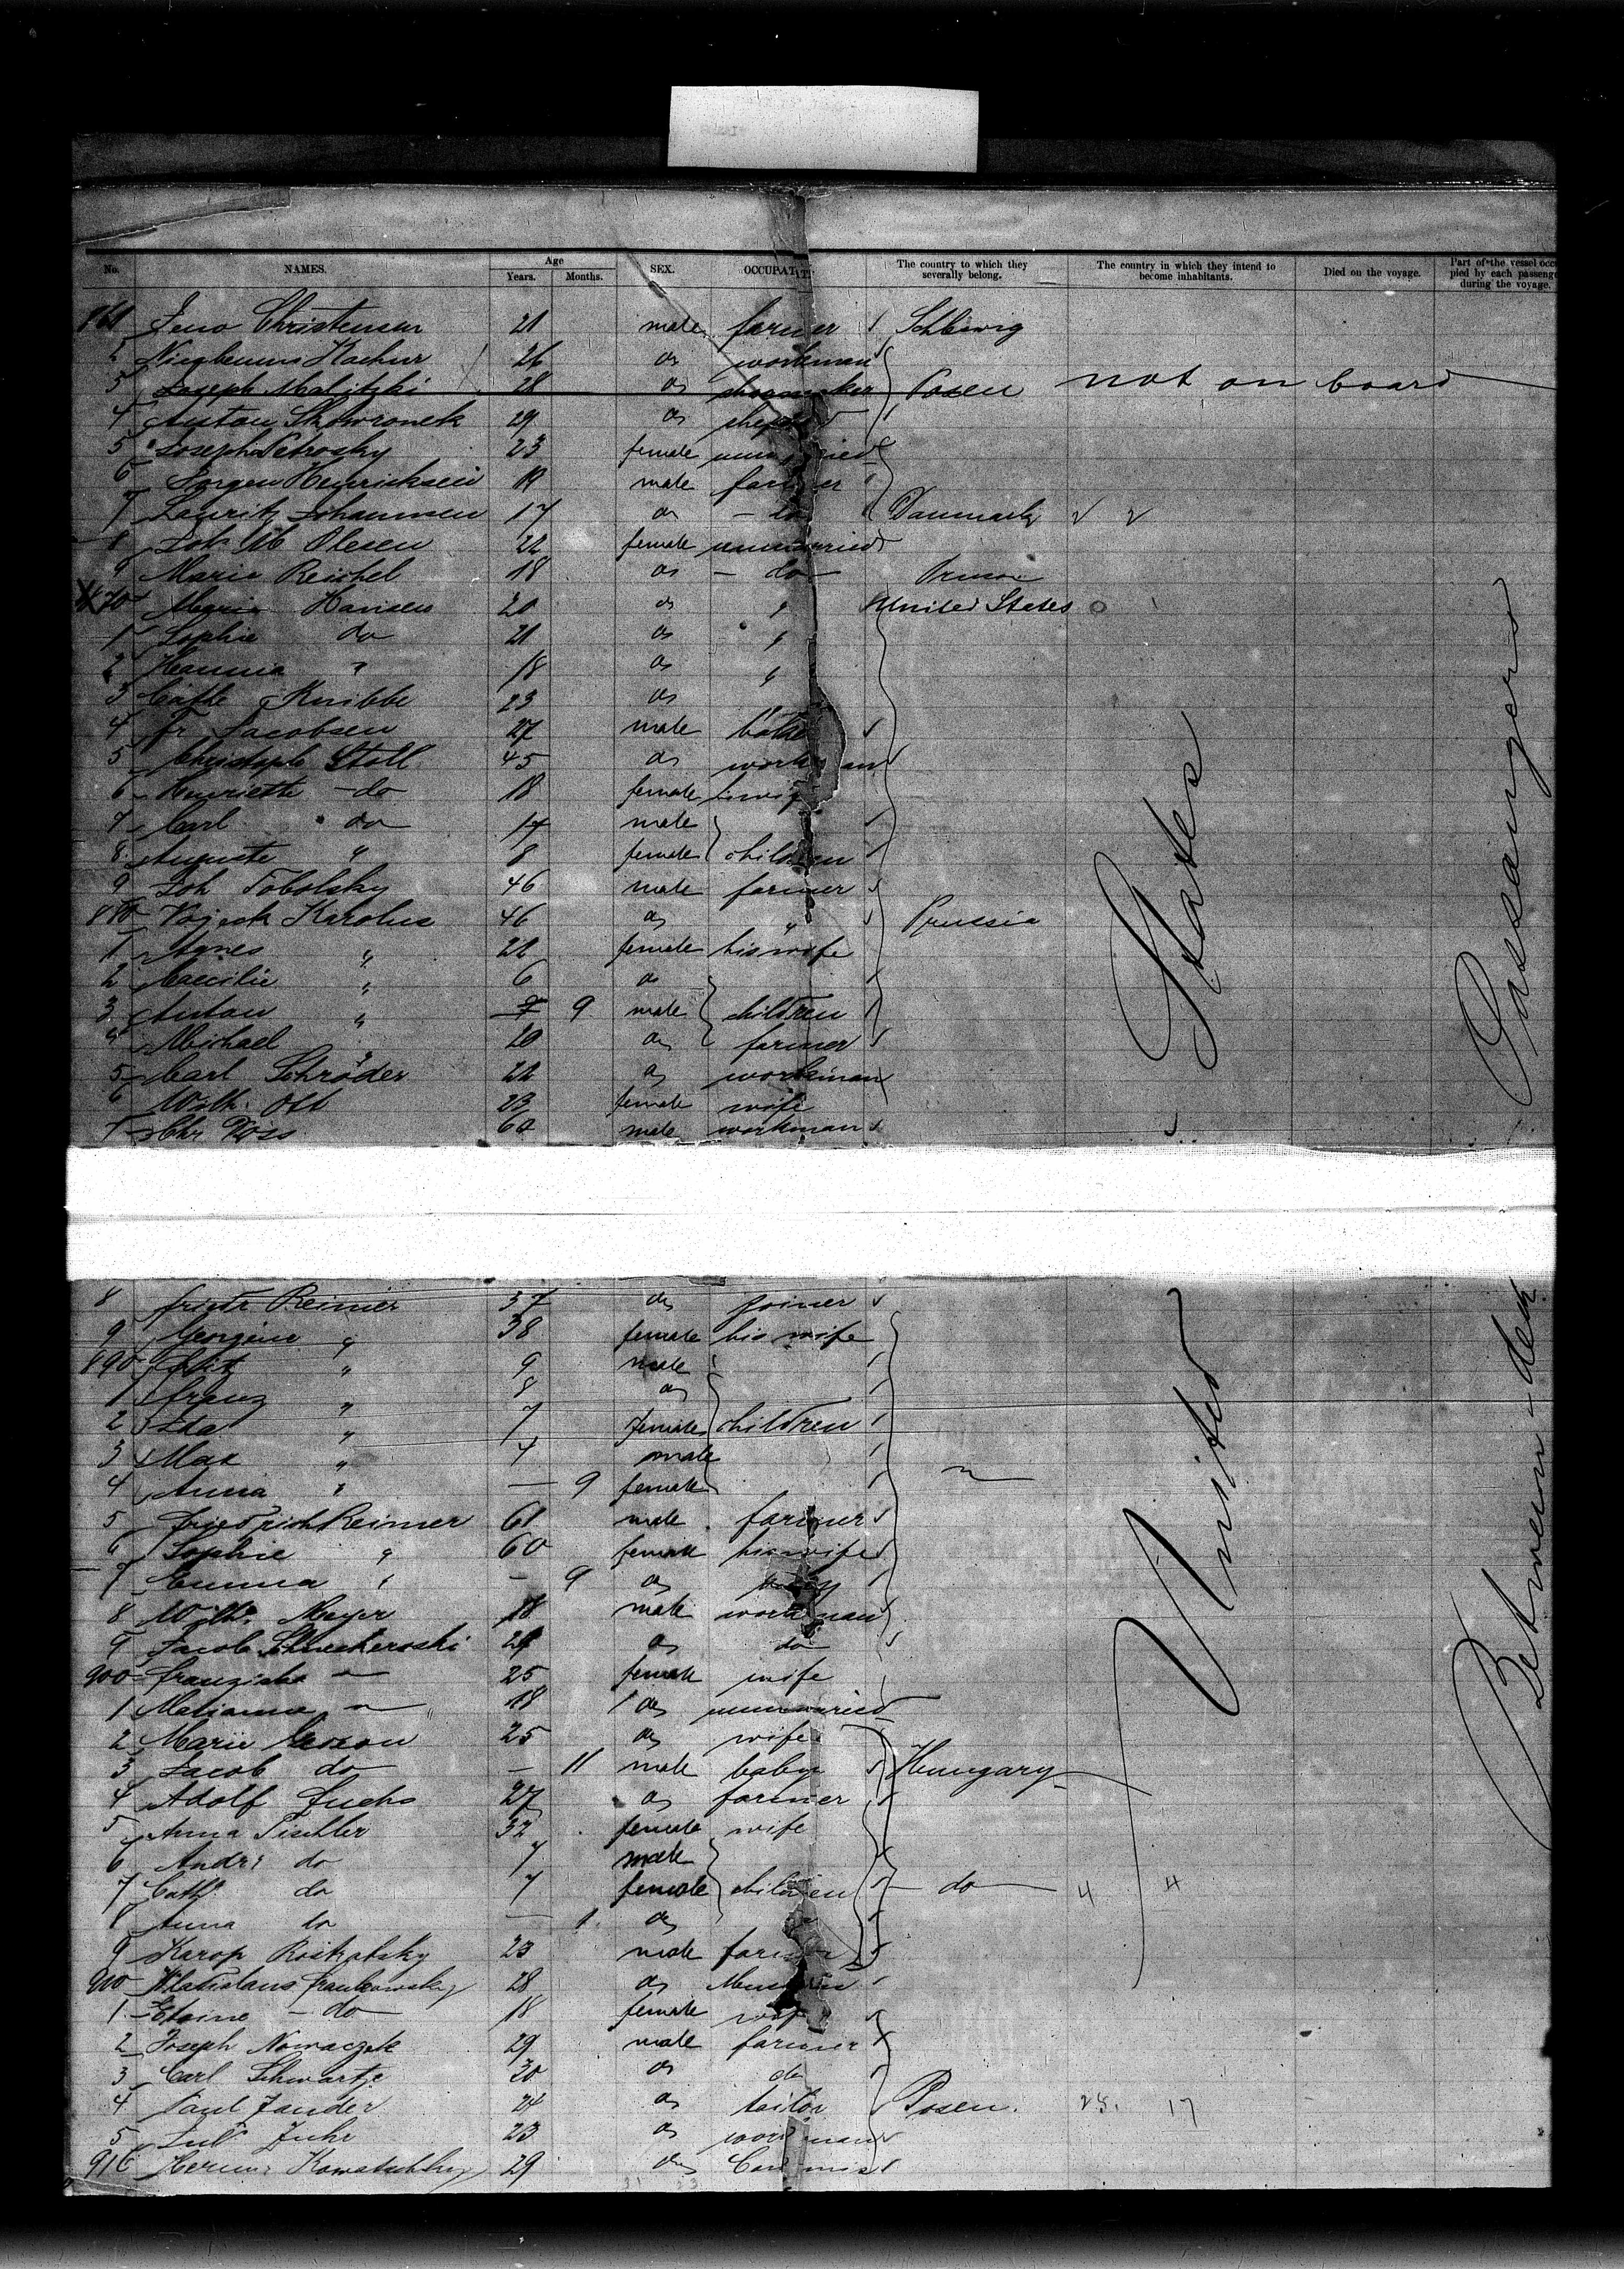 No. NAMES. Age Years. Months. SEX. OCCUPATI The country to which they severally belong. The country in which they intend to become inhabitants. Died on the voyage. Part of the vessel occu pied by each passenge during the voyage.
861 Jens Christensen 21 male farmer Schleswig
2 26 do workman
3 Joseph Malitzki 28 do shoemaker Posen not on board
4 Anton Skowronek 29 do
5 Joseph Petrosky 23 female unmarried
6 Jorgen Henricksen 19 male farmer
7 Lauritz Johannsen 17 do - do Danmark
8 Joh M Olesen 22 female unmarried
9 Marie Reichel 18 do - do -
870 Maria Hansen 20 do " United States
1 Sophie do 21 do "
2 Hanna " 18 do "
3 Cathe Knibbe 23 do
4 Fr Jacobsen 27 male
5 Christoph Stoll 45 do workman
6 Henriette - do 18 female
7 Carl do 14 male
8 Auguste " 8 female children
9 Joh Tobolsky 46 male farmer
880 Vojeck Karolus 46 do " Prussia
1 Agnes " 22 female his wife
2 Caecilie " 6 do
3 Anton " 9 male children
4 Michael " 20 do farmer
5 Carl Schröder 22 do workman
6 Wilh. Ott 23 female wife
7 Chr Voss 62 male workman
States
Passangers
8 Friedr Reimer 37 do joiner
9 Georgine " 38 female his wife
890 " 9 male
1 Franz " 8 do
2 Ida " 7 female children
3 Max " 4 male
4 Anna " — 9 female
5 Friedrich Reimer 61 male farmer
6 Sophie " 60 female his wife
7 Emma " — 9 do
8 Wilh. Meyer 18 male workman
9 Jacob 29 do do
900 Franziska 25 female wife
1 Marianna 18 do unmarried
2 Marie 25 do wife
3 Jacob do — 11 male baby Hungary
4 Adolf Fuchs 27 do farmer
5 Anna Tischler 32 female wife
6 Andr: do 7 male
7 Cath. do 7 female children - do -
8 Anna do — 1 do
9 23 male farmer
910 28 do
1 - do - 18 female wife
2 Joseph Nowaczek 29 male farmer
3 Carl Schwartze 30 do do
4 Paul Zander 24 do tailor Posen.
5 Jul. Fuhr 23 do workman
916 29 do
United
Between - deck